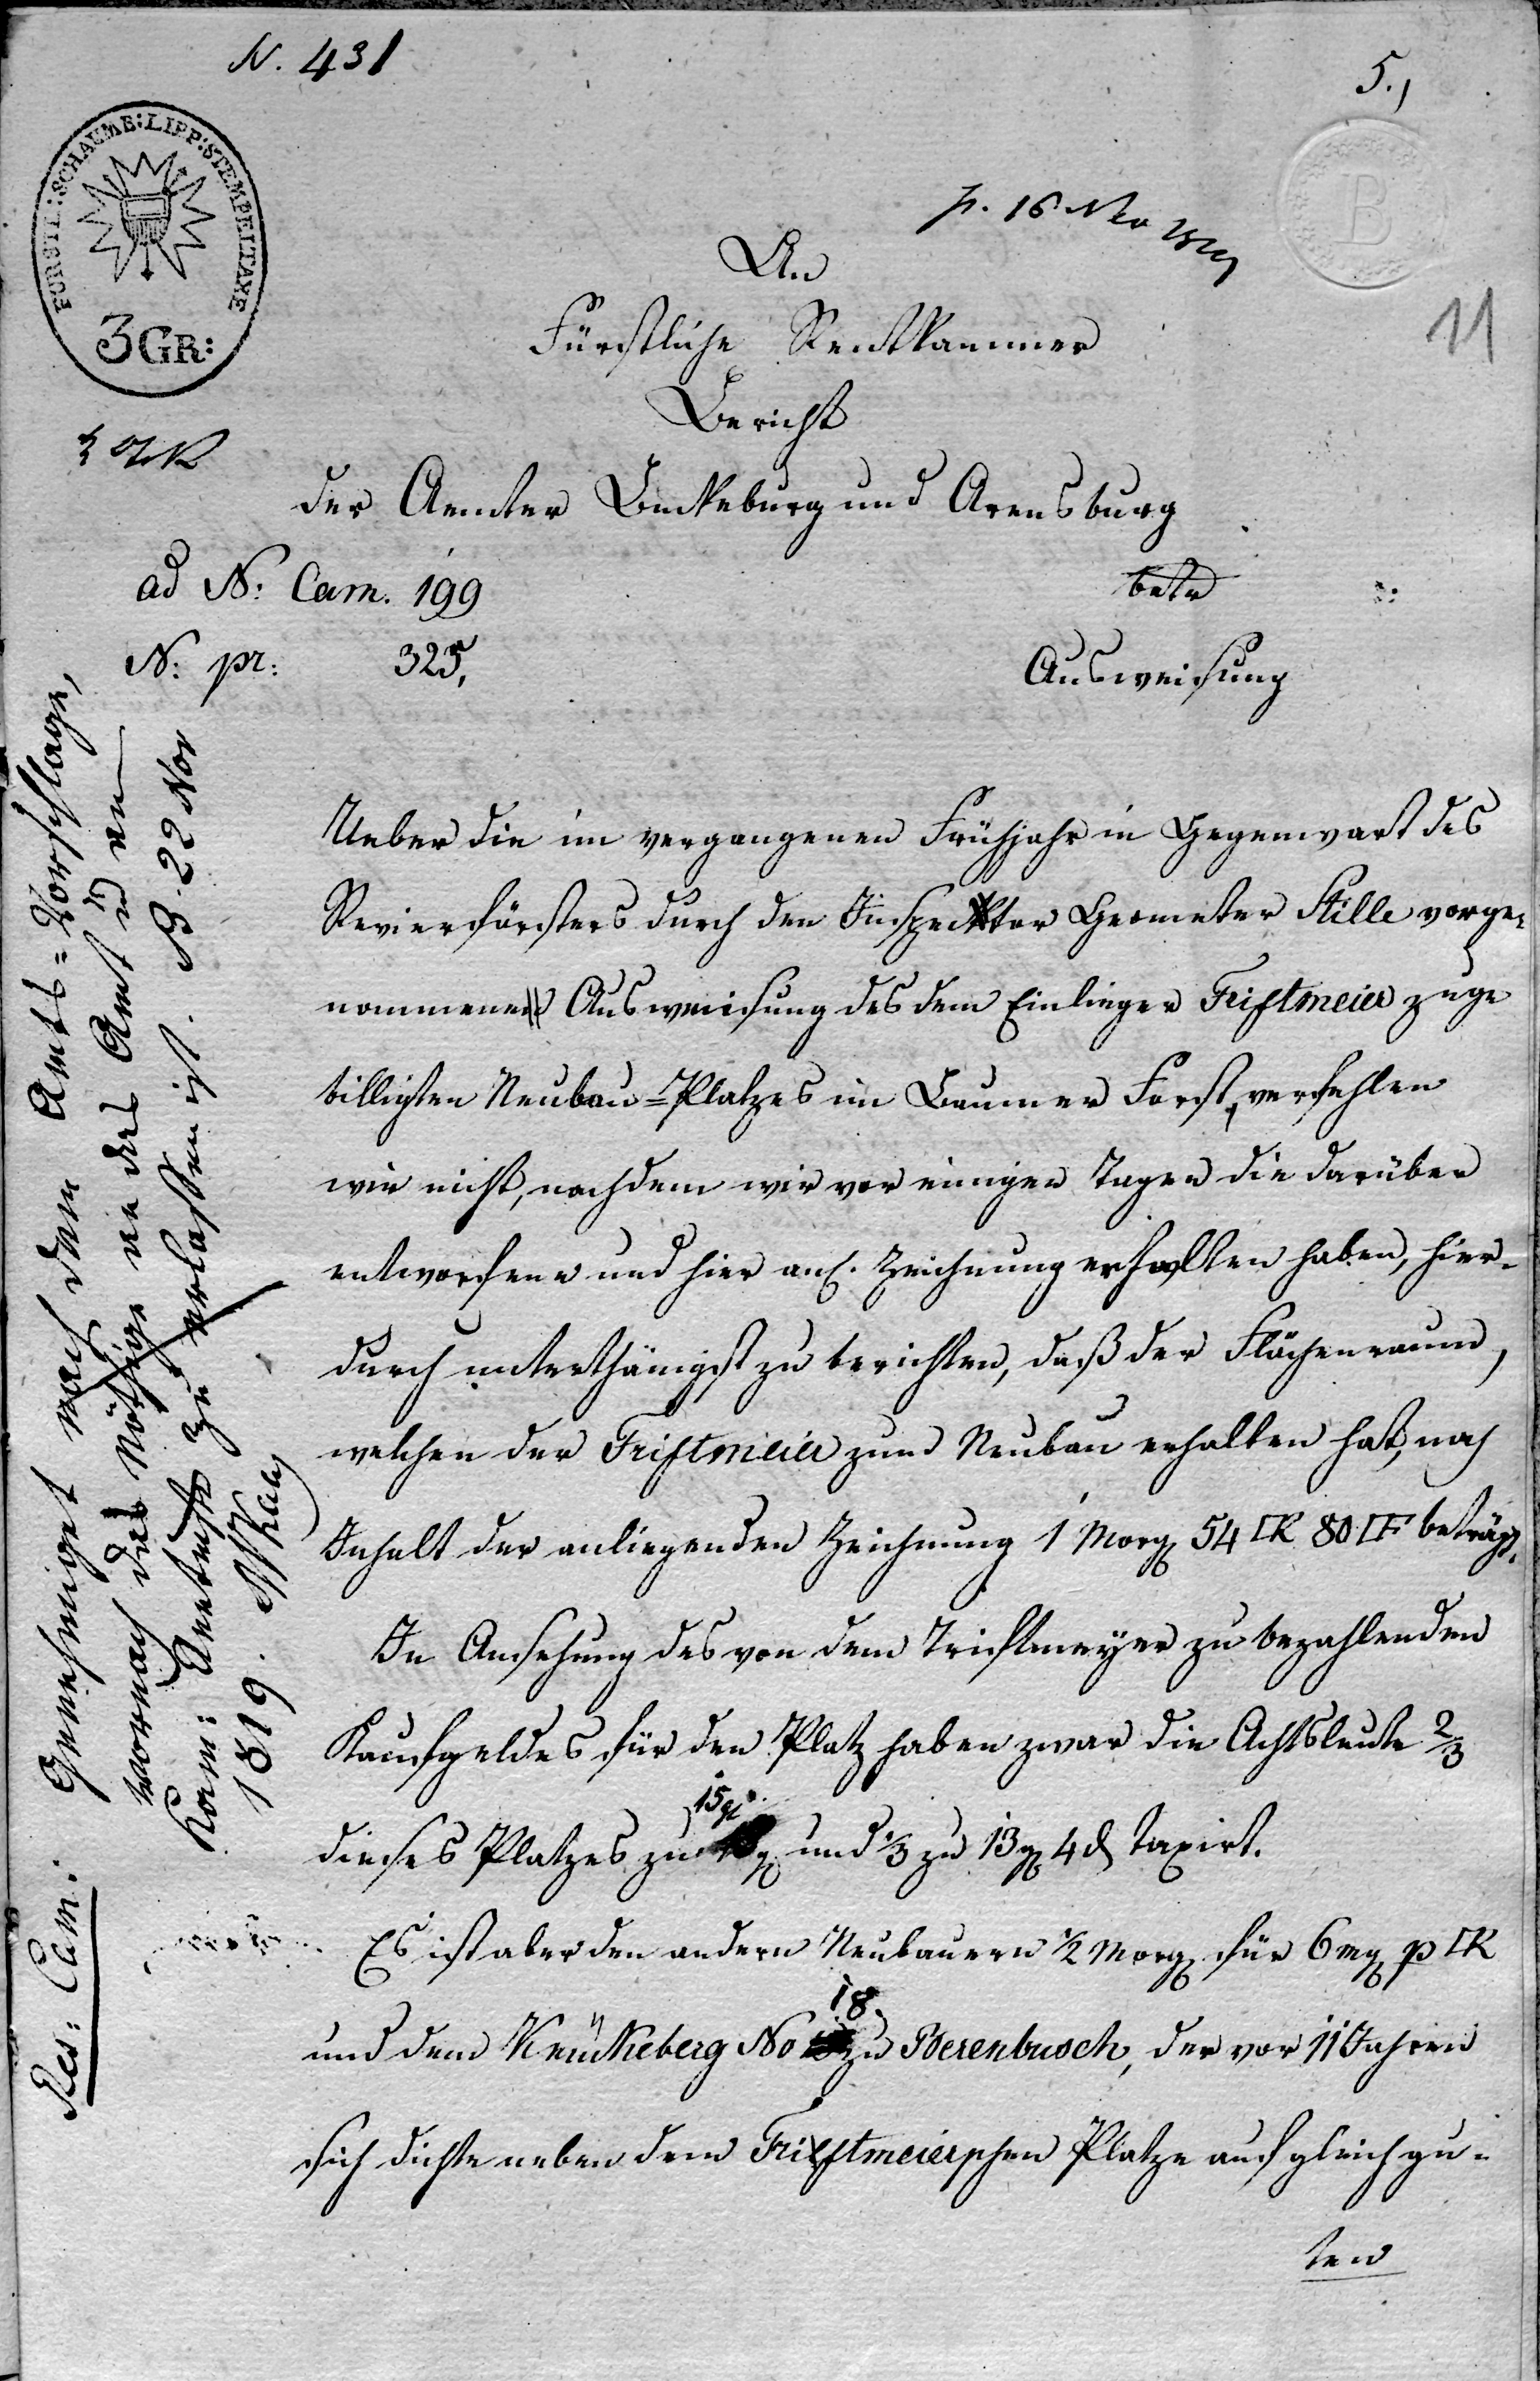 N. 431
5.,
FÜRSTL:SCHAUMB:LIPP:STEMPELTAXE
3 GR:
B
11
p. 16 Nov 1819
An
Fürstliche Rentkammer
Bericht
der Aemter Bückeburg und Arensburg
ad N: Cam. 199
betr
N: pr: 325,
Ausweisung
Ueber die im vergangenen Frühjahr in Gegenwart des
Revierförsters durch den Inspector Geometer Stille vorge-
nommene Ausweisung des dem Einlieger Triftmeier zuge
billigten Neubau-Platzes im Baumer Forst, verfehlen
wir nicht, nachdem wir vor einigen Tagen die darüber
entworfene und hier anl. Zeichnung erhalten haben, hier-
durch unterthänigst zu berichten, daß der Flächenraum,
welchen der Triftmeier zum Neubau erhalten hat, nach
Inhalt der anliegenden Zeichnung 1 Morg 54 □R 80 □F beträgt.
In Ansehung des von dem Triftmeyer zu bezahlenden
Kaufgeldes für den Platz haben zwar die Achtsleute 2/3
dieses Platzes zu 15 g und 1/3 zu 13 g 4 d taxirt.
Es ist aber den andern Neubauern 1/2 Morg für 6 mg p □R
und dem Neukeberg No 18 zu Berenbusch, der vor 11 Jahren
sich dichte neben dem Triftmeierschen Platze auf gleich gu-
ten
Res: Cam: Genehmiget nach dem Amts-Vorschlage,
wornach das Nöthige an das Amt u an
Kam: Rentrst zu erlassen ist. B. 22 Nov
1819.